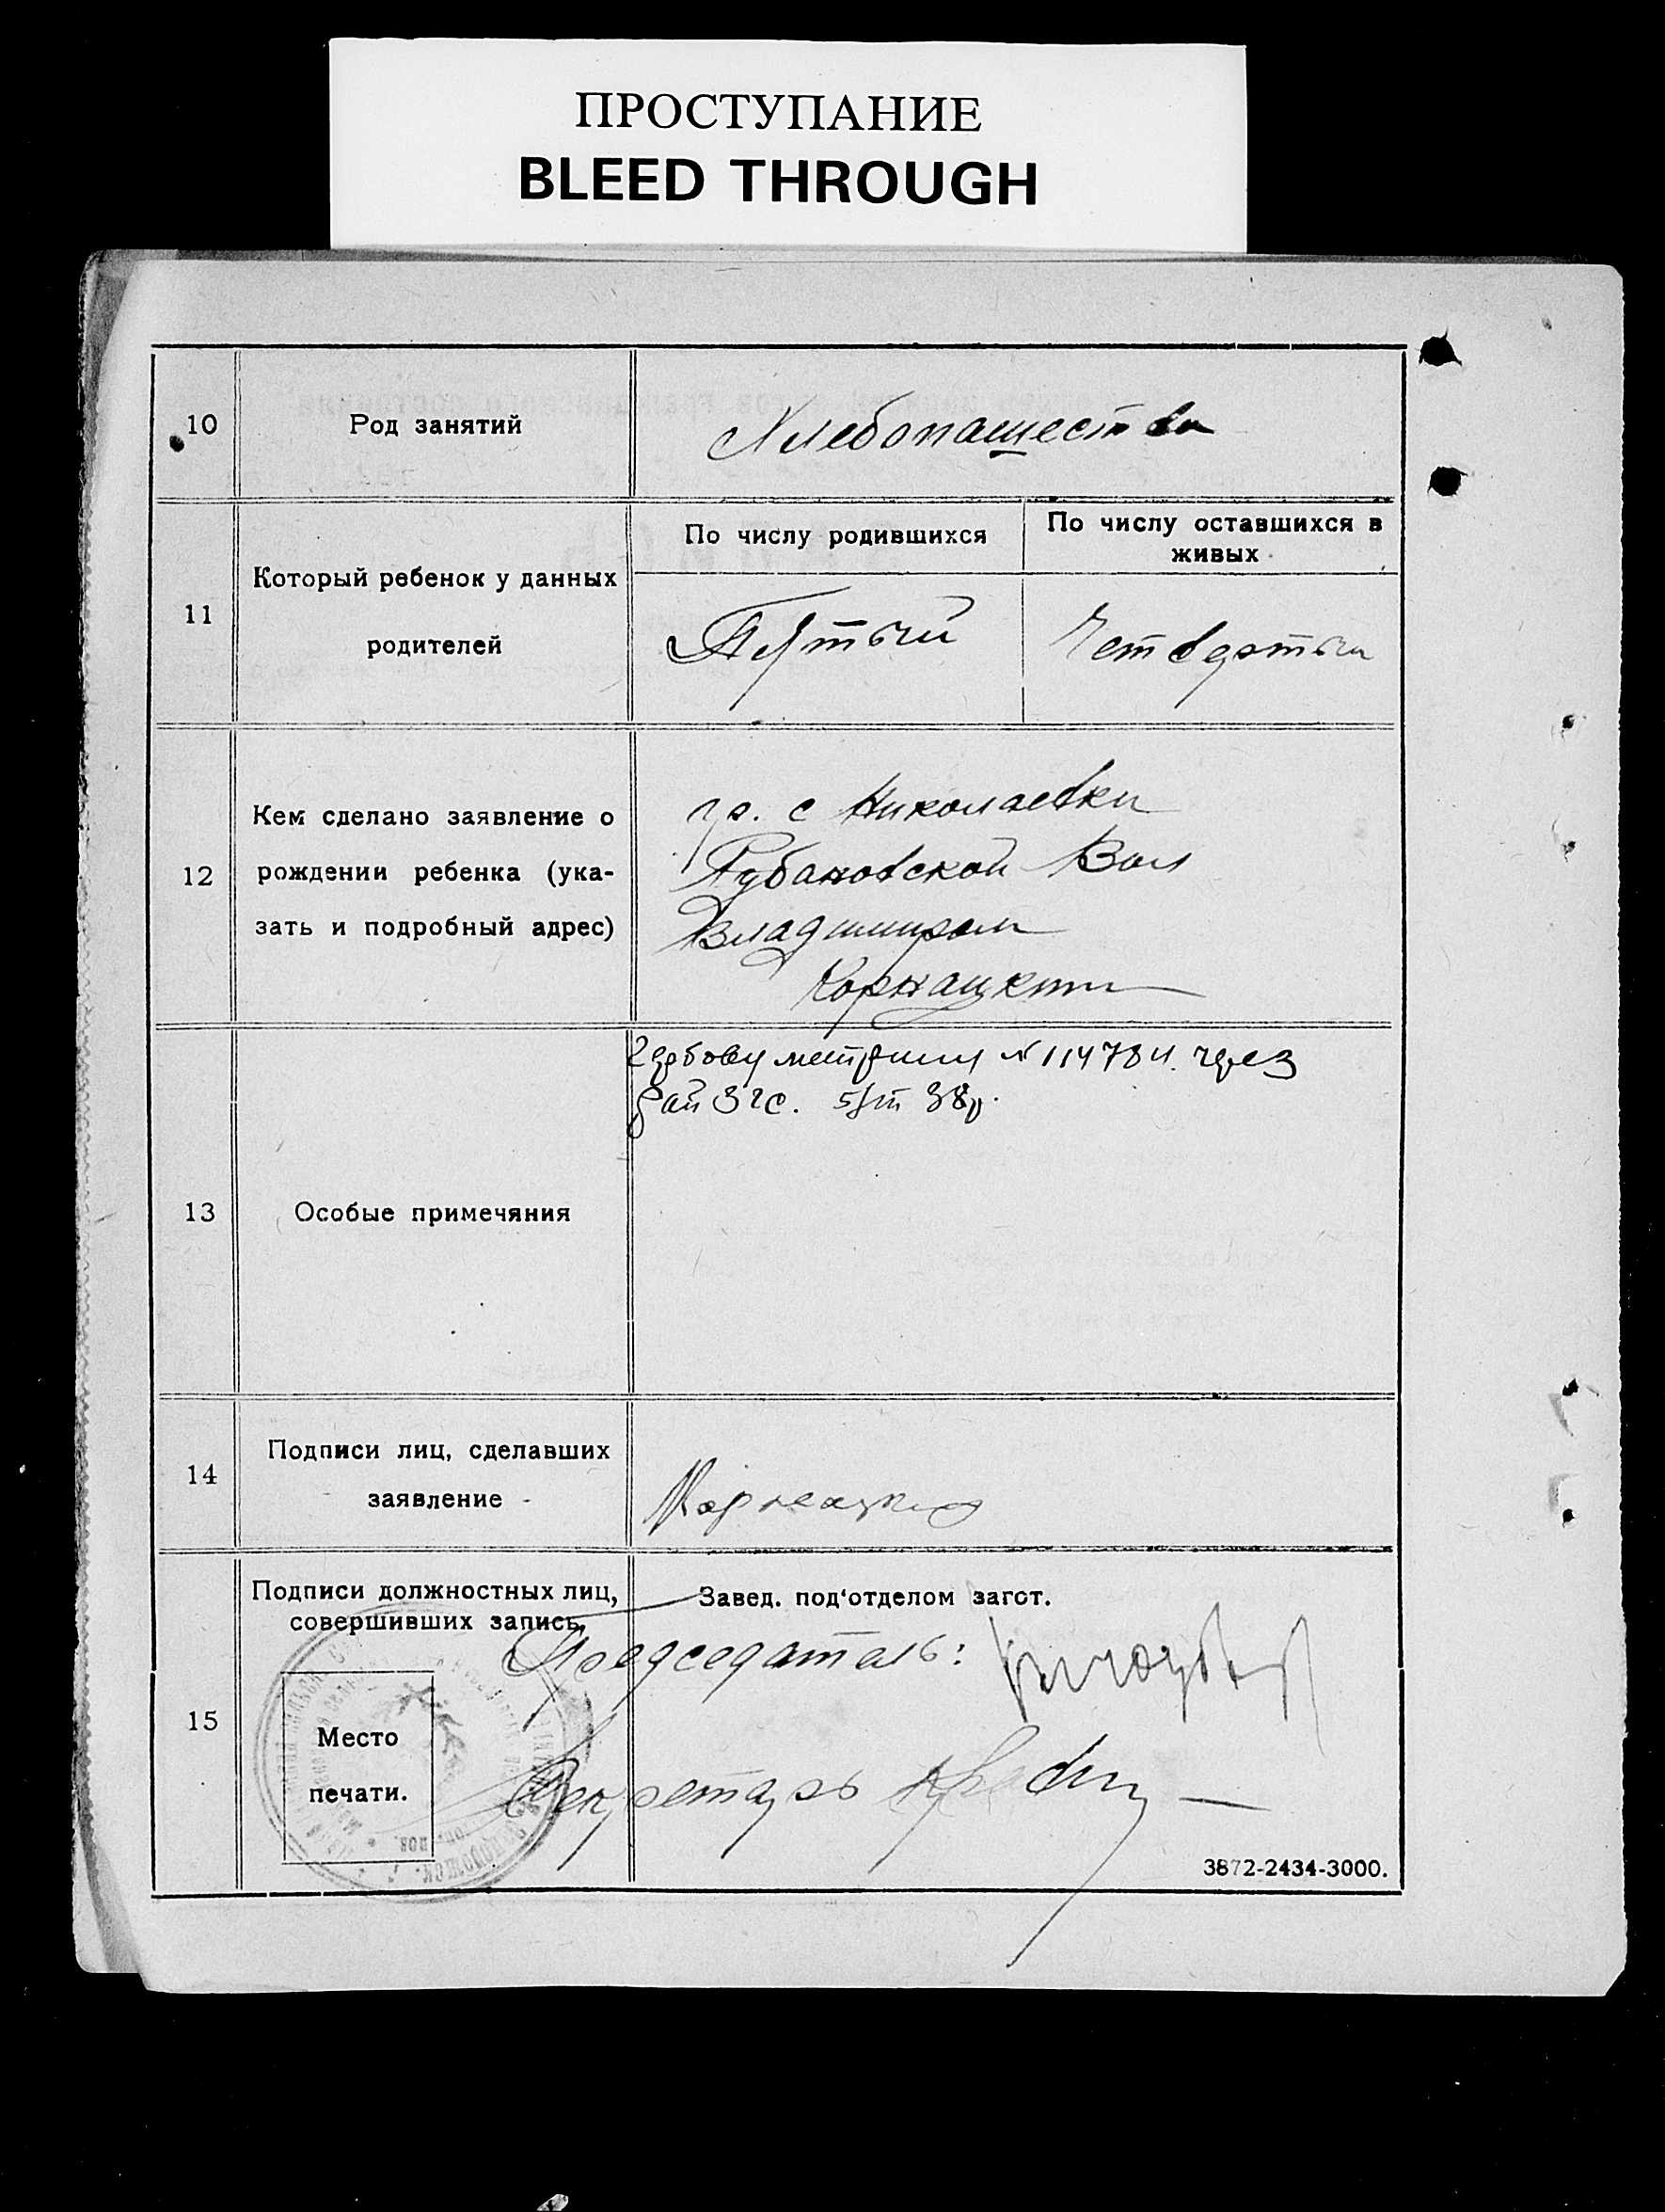 ПРОСТУПАНИЕ
BLEED THROUGH
10
Род занятий
Хлебопашество
11
Который ребенок у данных
родителей
По числу родившихся
По числу оставшихся в
живых
Пятый
Четвертый
12
Кем сделано заявление о
рождении ребенка (ука-
зать и подробный адрес)
гр. с Николаевки
Рубановской Вол
Владимиром
Корнацким
13
Особые примечяния
Гербову метрику № 114784. через
рай ЗАГС. 38р.
14
Подписи лиц, сделавших
заявление
Корнацкий
15
Подписи должностных лиц,
совершивших запись.
Место
печати.
Завед. под'отделом загст.
Председатель:
Секретарь
3872-2434-3000.